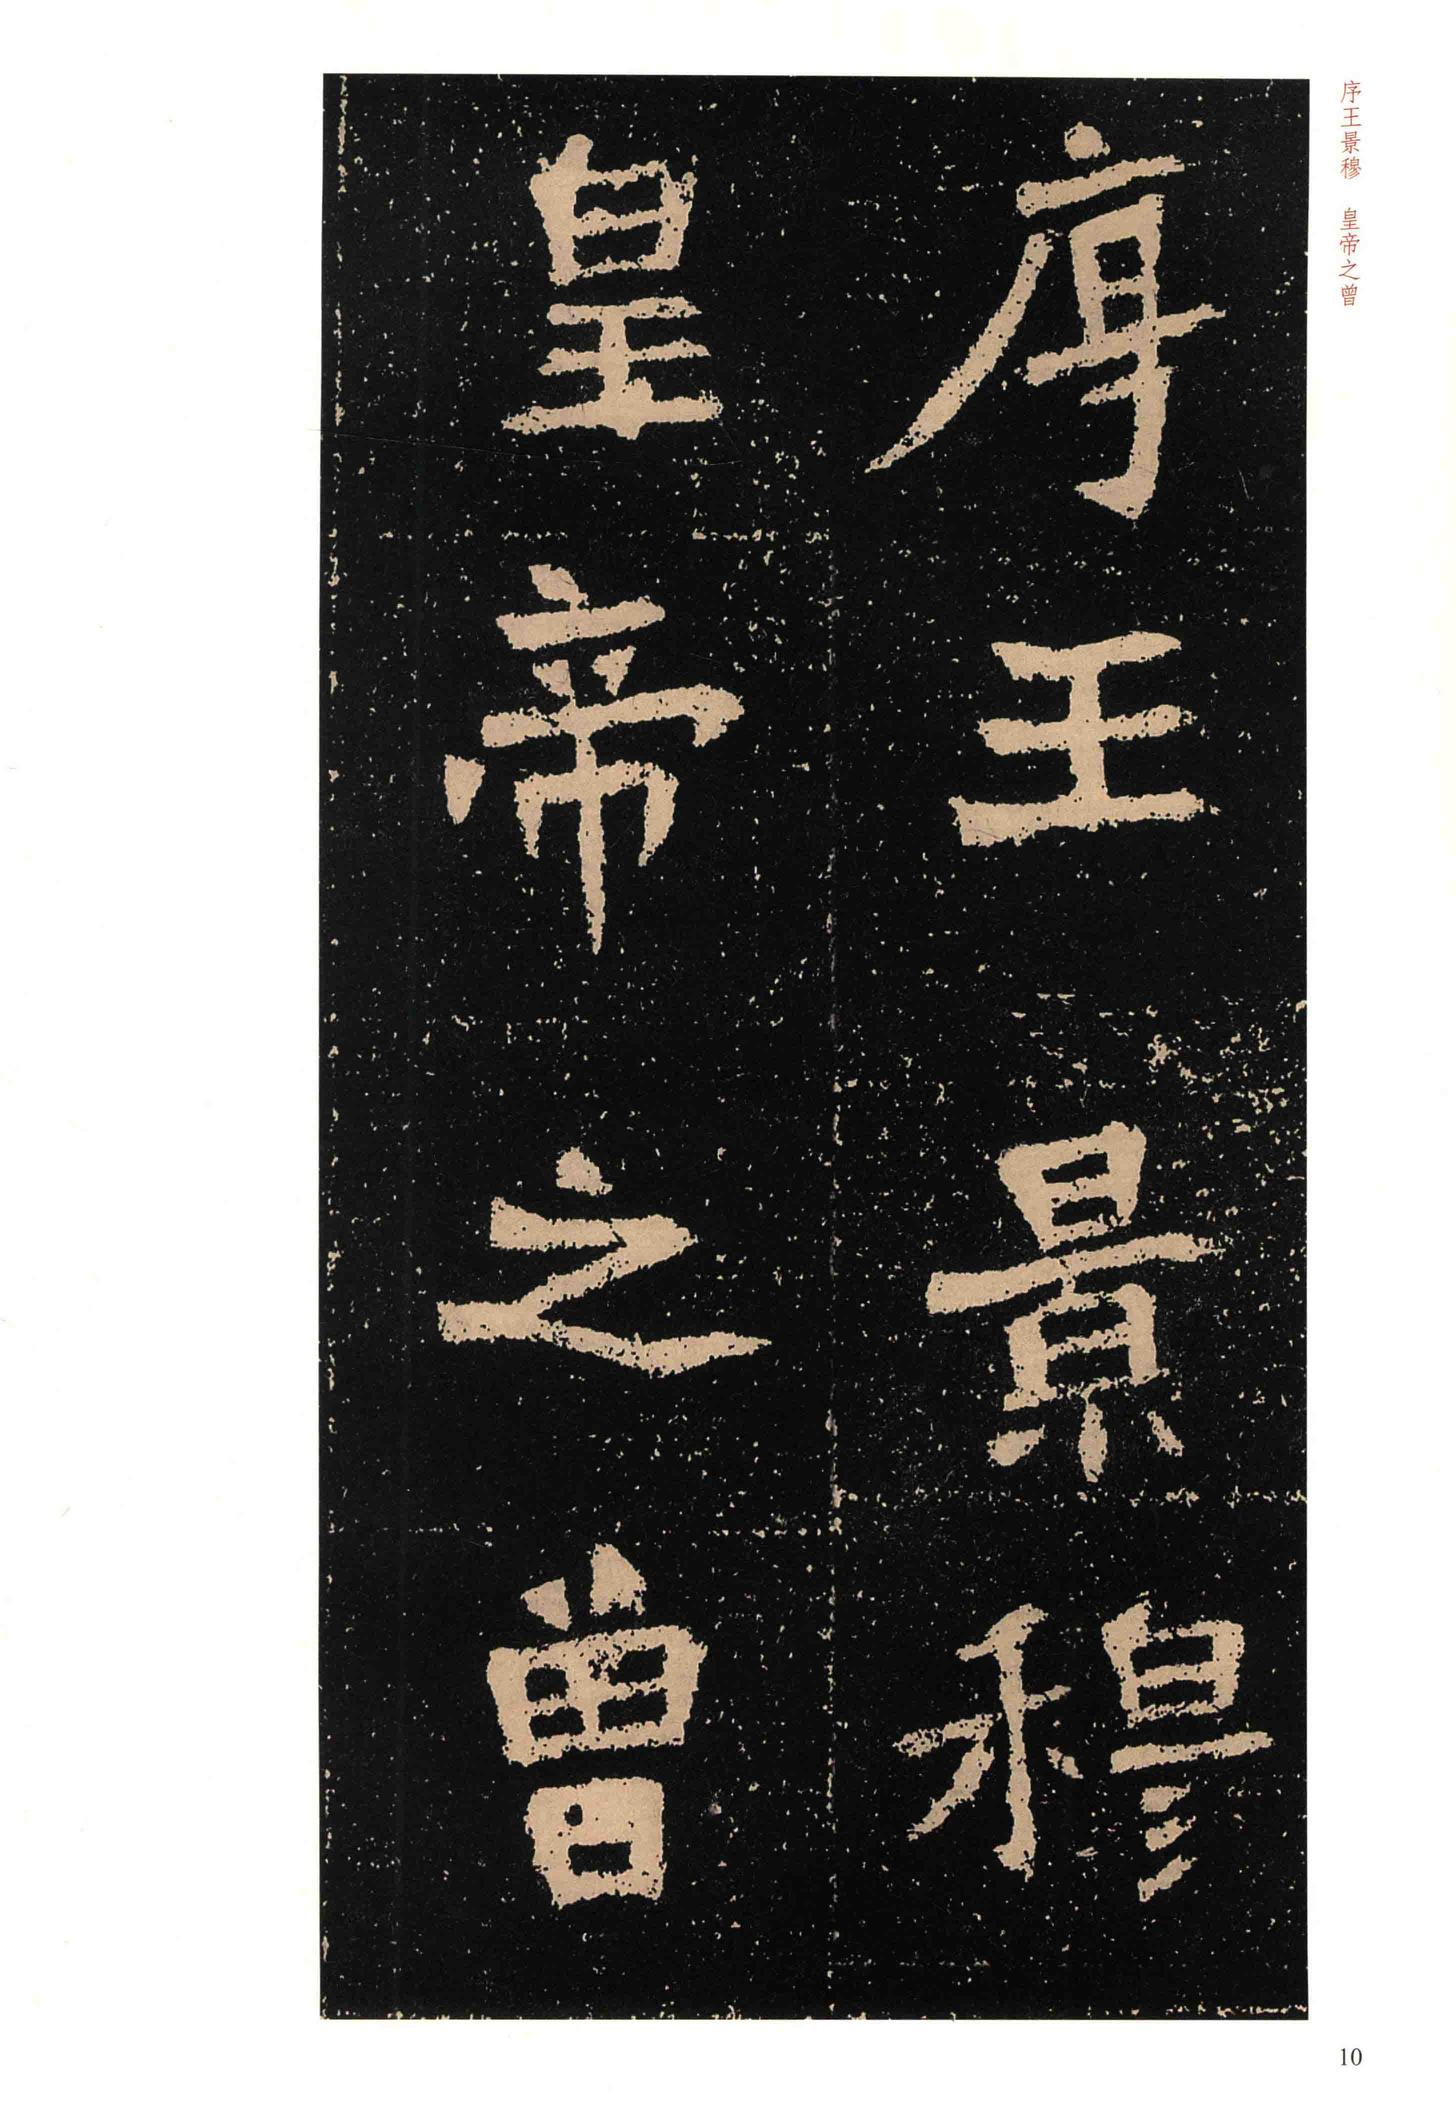 序王景穆　皇帝之曾
序王景穆
皇帝之曾
10